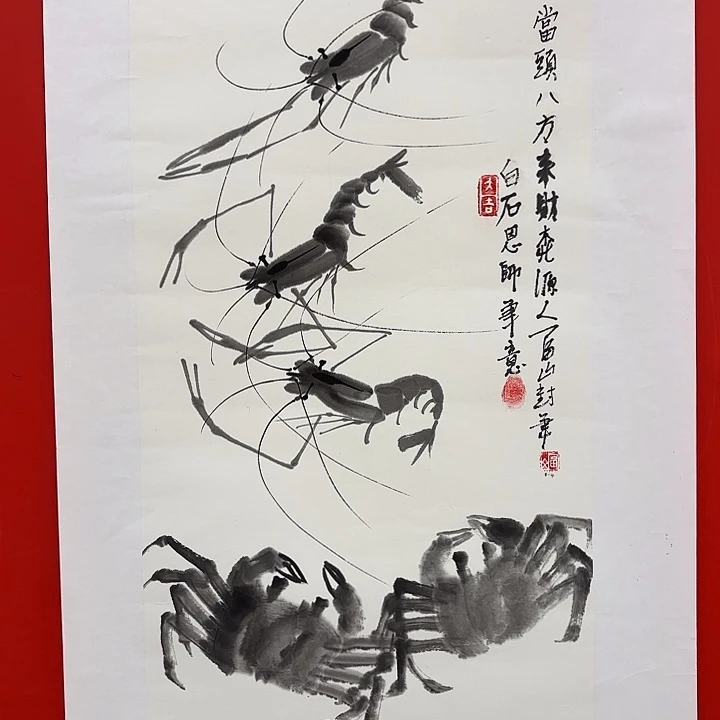 當頭八方來財
源人
山封筆
白石恩師筆意
大吉